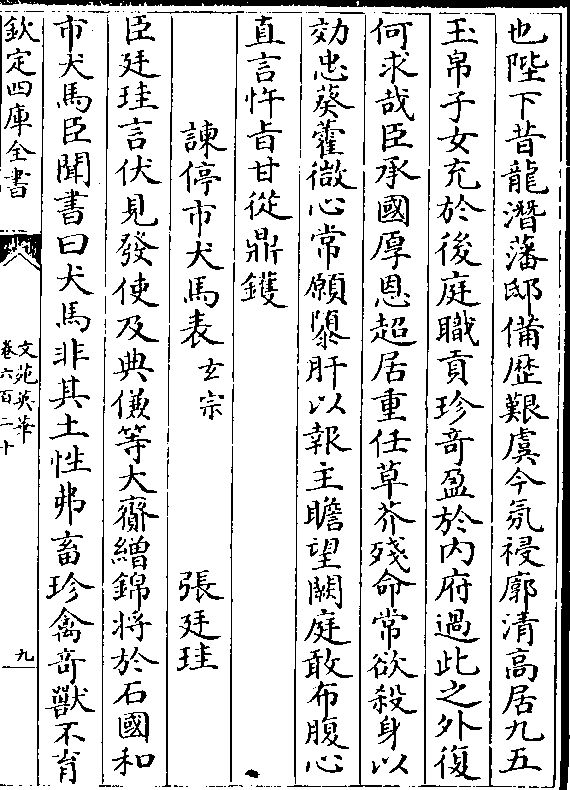 也陛下昔龍潛藩邸備歴艱虞今氛祲廓清高居九五
玉帛子女充於後庭職貢珍竒盈於内府過此之外復
何求哉臣承國厚恩超居重任草芥殘命常欲殺身以
効忠葵藿微心常願隳肝以報主瞻望闕庭敢布腹心
直言忤旨甘從鼎鑊
諫停市犬馬表玄宗 張廷珪
臣廷珪言伏見發使及典儀等大齎繒錦將於石國和
市犬馬臣聞書曰犬馬非其土性弗畜珍禽竒獸不育
欽定四庫全書
文苑英華
卷六百二十
九